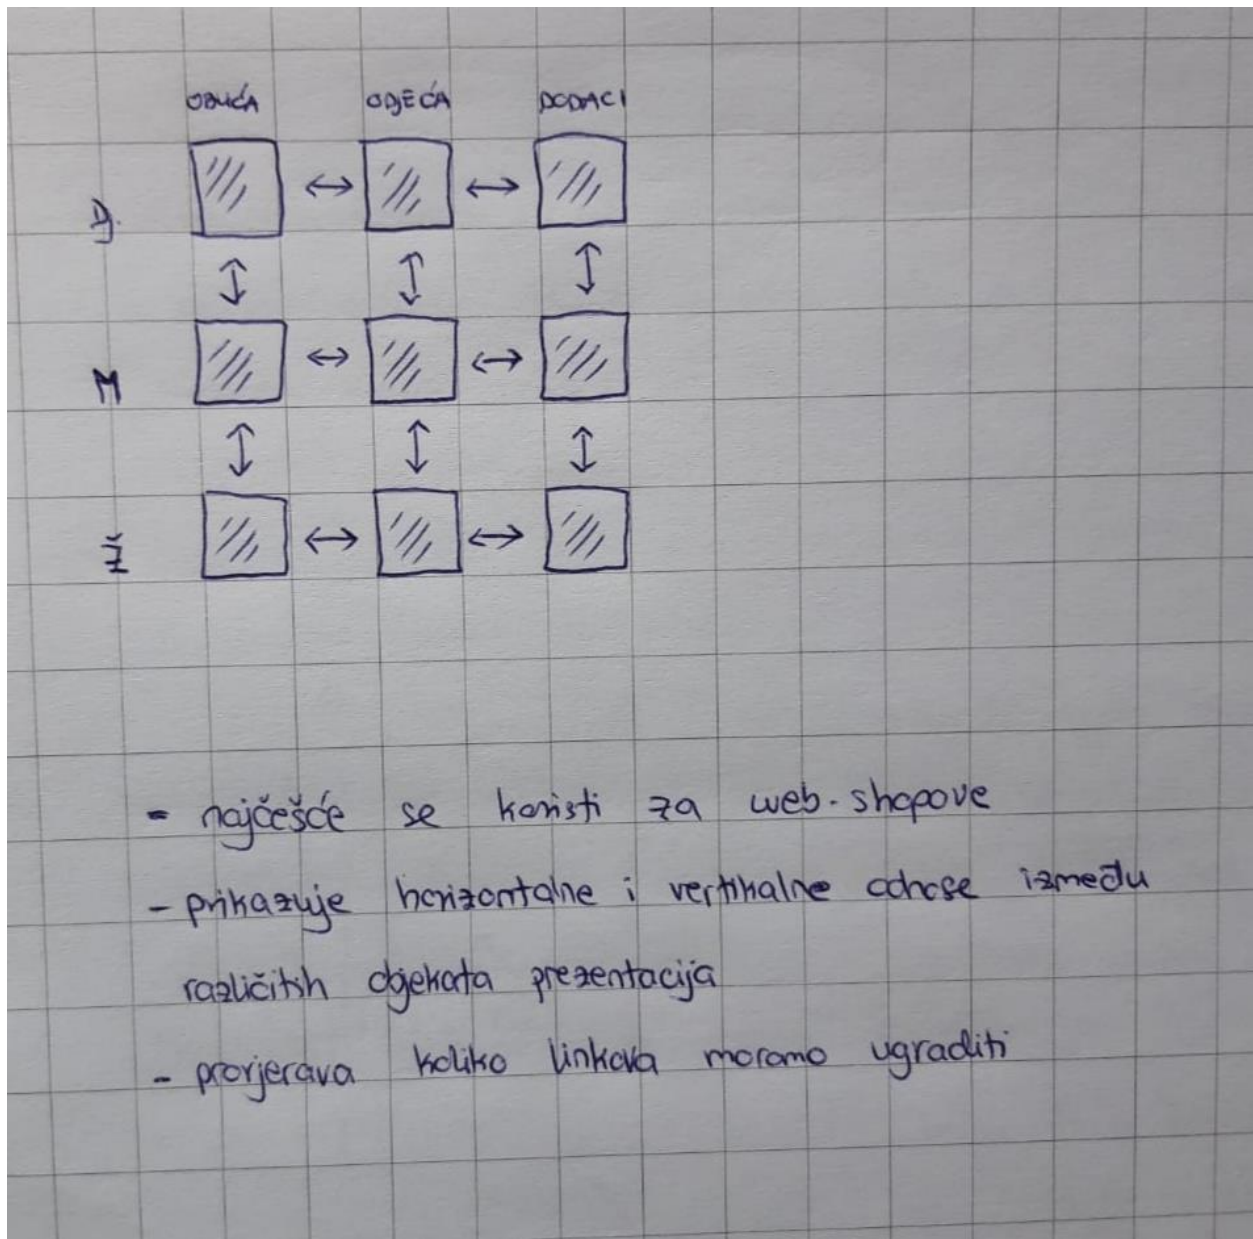 OBUĆA ODJEĆA DODACI
D.
M
Ž
- najčešće se koristi za web-shopove
- prikazuje horizontalne i vertikalne odnose između
različitih objekata prezentacija
- provjerava koliko linkova moramo ugraditi